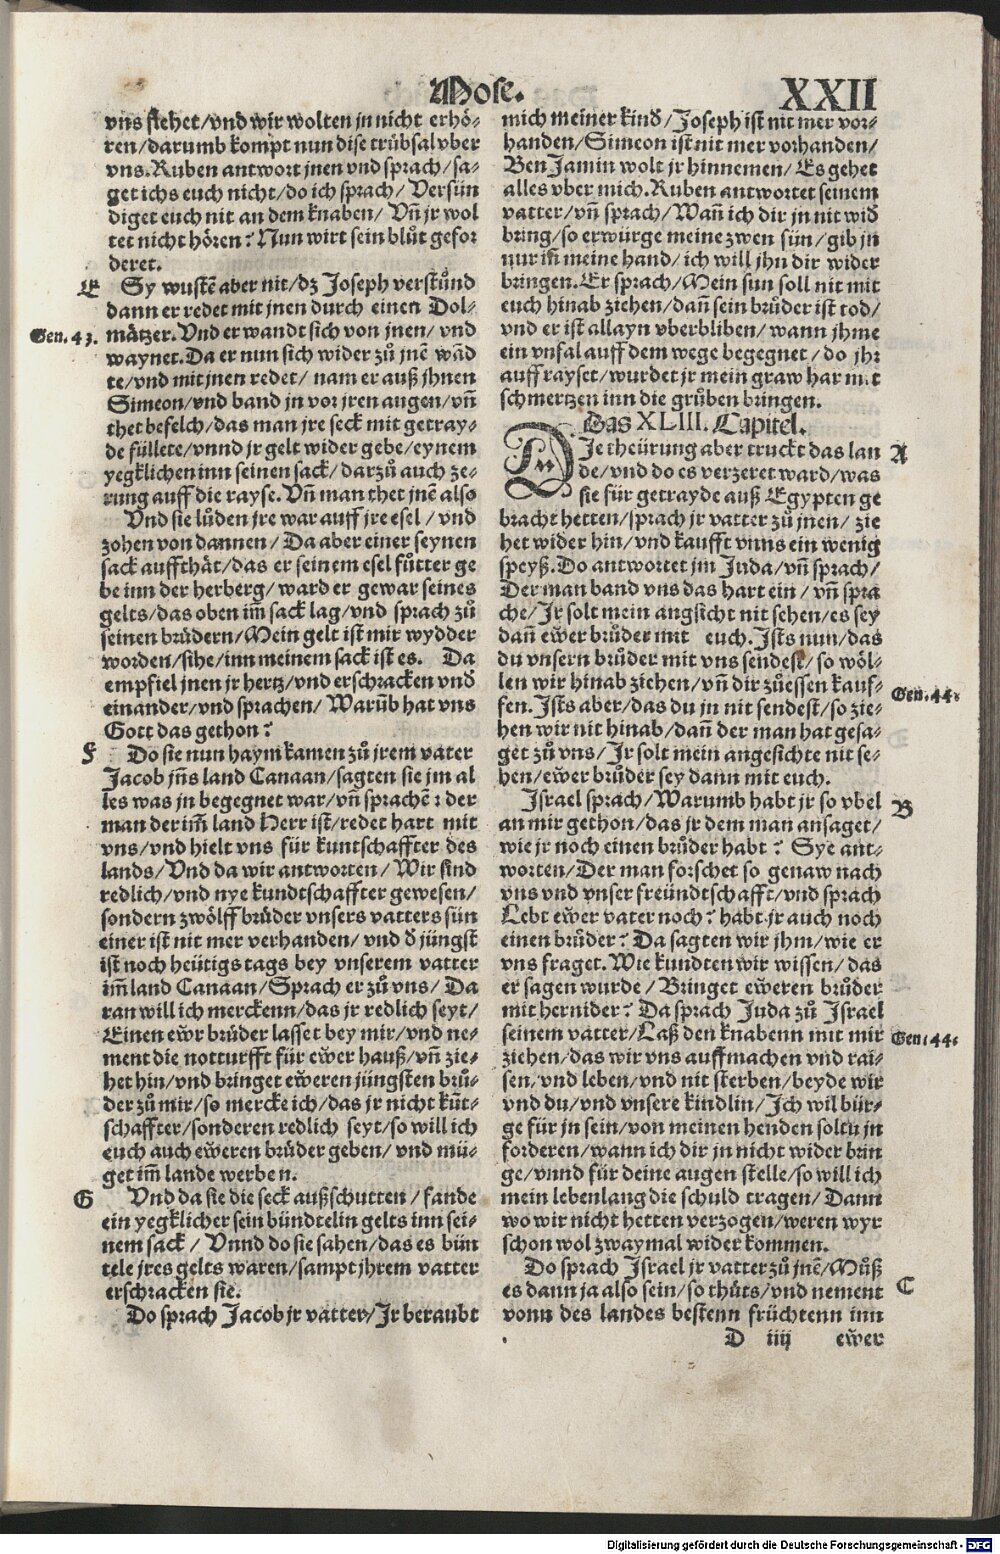 Mose. XXII
vns flehet/vnd wir wolten jn nicht erhö-
ren/darumb kompt nun dise trübsal vber
vns. Ruben antwort jnen vnd sprach/sa-
get ichs euch nicht/do ich sprach/ Versün
diget euch nit an dem knaben/ Vñ jr wol
tet nicht hören? Nun wirt sein blůt gefor
deret.
E Sy wustẽ aber nit/dz Joseph verstůnd
dann er redet mit jnen durch einen Dol-
Gen. 43. mätzer. Vnd er wandt sich von jnen/ vnd
waynet. Da er nun sich wider zů jnẽ wãd
te/vnd mit jnen redet/ nam er auß jhnen
Simeon/vnd band jn vor jren augen/vñ
thet befelch/das man jre seck mit getray-
de füllete/vnnd jr gelt wider gebe/eynem
yegklichen inn seinen sack/ darzů auch ze-
rung auff die rayse. Vñ man thet jnẽ also
Vnd sie lůden jre war auff jre esel/vnd
zohen von dannen/ Da aber einer seynen
sack auffthät/das er seinem esel fůtter ge
be inn der herberg/ ward er gewar seines
gelts/das oben im̃ sack lag/vnd sprach zů
seinen brůdern/Mein gelt ist mir wydder
worden/sihe/inn meinem sack ist es. Da
empfiel jnen jr hertz/vnd erschracken vnd
einander/vnd sprachen/ Warũb hat vns
Gott das gethon?
F Do sie nun haym kamen zů jrem vater
Jacob jñs land Canaan/sagten sie jm al
les was jn begegnet war/vñ sprachẽ: der
man der im̃ land Herr ist/redet hart mit
vns/vnd hielt vns für kuntschaffter des
lands/Vnd da wir antworten/ Wir sind
redlich/vnd nye kundtschaffter gewesen/
sondern zwölff brůder vnsers vatters sün
einer ist nit mer verhanden/ vnd d̃ jüngst
ist noch heütigs tags bey vnserem vatter
im̃ land Canaan/Sprach er zů vns/ Da
ran will ich merckenn/das jr redlich seyt/
Einen ewr brůder lasset bey mir/vnd ne-
ment die notturfft für ewer hauß/vñ zie-
het hin/vnd bringet eweren jüngsten brů-
der zů mir/so mercke ich/das jr nicht kũt-
schaffter/sonderen redlich seyt/so will ich
euch auch eweren brůder geben/ vnd mü-
get im̃ lande werben.
G Vnd da sie die seck außschutten/ fande
ein yegklicher sein bündtelin gelts inn sei-
nem sack/ Vnnd do sie sahen/das es bün
tele jres gelts waren/sampt jhrem vatter
erschracken sie.
Do sprach Jacob jr vatter/Jr beraubt
mich meiner kind/Joseph ist nit mer vor-
handen/Simeon ist nit mer vorhanden/
BenJamin wolt jr hinnemen/ Es gehet
alles vber mich. Ruben antwortet seinem
vatter/vñ sprach/Wañ ich dir jn nit wid̃
bring/so erwürge meine zwen sün/gib jn
nur im̃ meine hand/ich will jhn dir wider
bringen. Er sprach/Mein sun soll nit mit
euch hinab ziehen/dañ sein brůder ist tod/
vnd er ist allayn vberbliben/wann jhme
ein vnfal auff dem wege begegnet/do jhr
auff rayset/wurdet jr mein graw har mit
schmertzen inn die grůben bringen.
Das XLIII. Capitel.
DJe theürung aber truckt das lan A
de/vnd do es verzeret ward/was
sie für getrayde auß Egypten ge
bracht hetten/sprach jr vatter zů jnen/ zie
het wider hin/vnd kaufft vnns ein wenig
speyß. Do antwortet jm Juda/vñ sprach/
Der man band vns das hart ein/ vñ spra
che/Jr solt mein angsicht nit sehen/es sey
dañ ewer brůder mit euch. Jsts nun/das
du vnsern brůder mit vns sendest/so wöl-
len wir hinab ziehen/vñ dir zůessen kauf- Gen. 44.
fen. Jsts aber/das du jn nit sendest/so zie-
hen wir nit hinab/dañ der man hat gesa-
get zů vns/Jr solt mein angesichte nit se-
hen/ewer brůder sey dann mit euch.
Israel sprach/Warumb habt jr so vbel B
an mir gethon/das jr dem man ansaget/
wie jr noch einen brůder habt? Sye ant-
worten/Der man forschet so genaw nach
vns vnd vnser freündtschafft/vnd sprach
Lebt ewer vater noch? habt jr auch noch
einen brůder? Da sagten wir jhm/wie er
vns fraget. Wie kundten wir wissen/das
er sagen wurde/Bringet eweren brůder
mit hernider? Da sprach Juda zů Jsrael
seinem vatter/Laß den knabenn mit mir Gen. 44.
ziehen/das wir vns auffmachen vnd rai-
sen/vnd leben/vnd nit sterben/beyde wir
vnd du/vnd vnsere kindlin/Jch wil bür-
ge für jn sein/von meinen henden soltu jn
forderen/wann ich dir jn nicht wider brin
ge/vnnd für deine augen stelle/so will ich
mein lebenlang die schuld tragen/Dann
wo wir nicht hetten verzogen/weren wyr
schon wol zwaymal wider kommen.
Do sprach Israel jr vatter zů jnẽ/Můß
es dann ja also sein/so thüts/vnd nement C
vonn des landes bestenn früchtenn inn
D iiij ewer
Digitalisierung gefördert durch die Deutsche Forschungsgemeinschaft - DFG